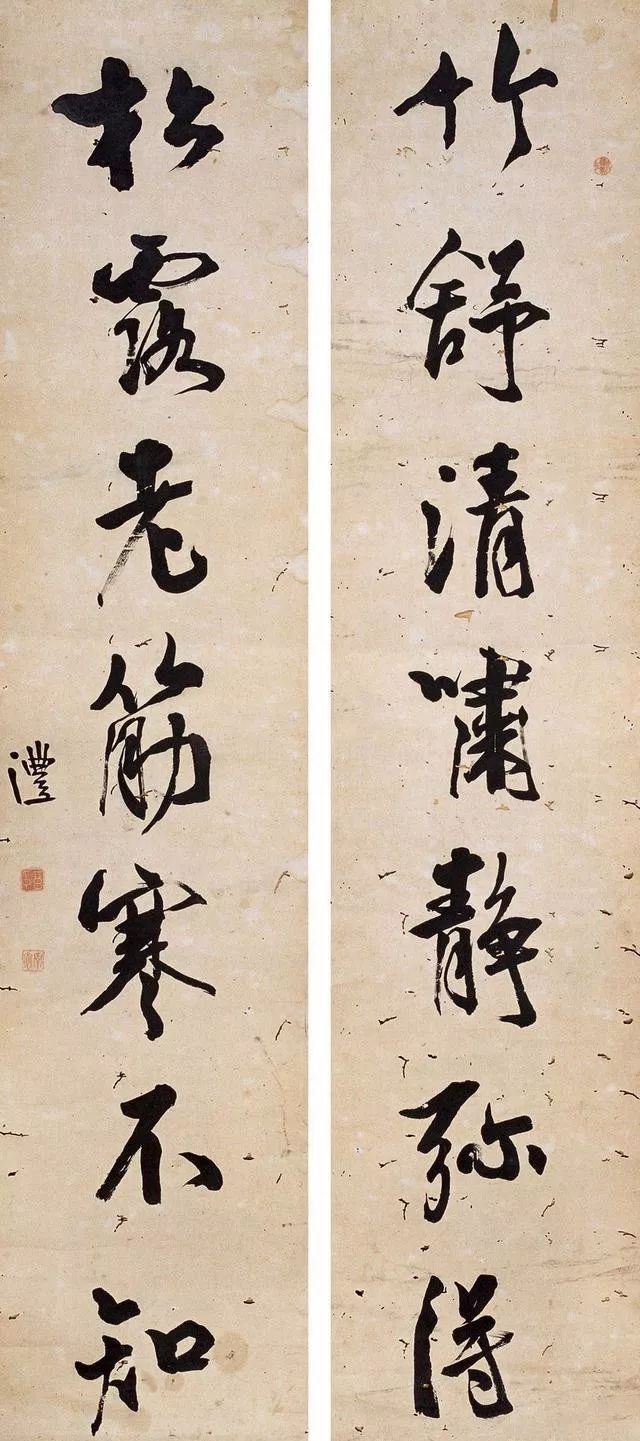 竹舒清嘯静弥得
松露老筋寒不知
澧